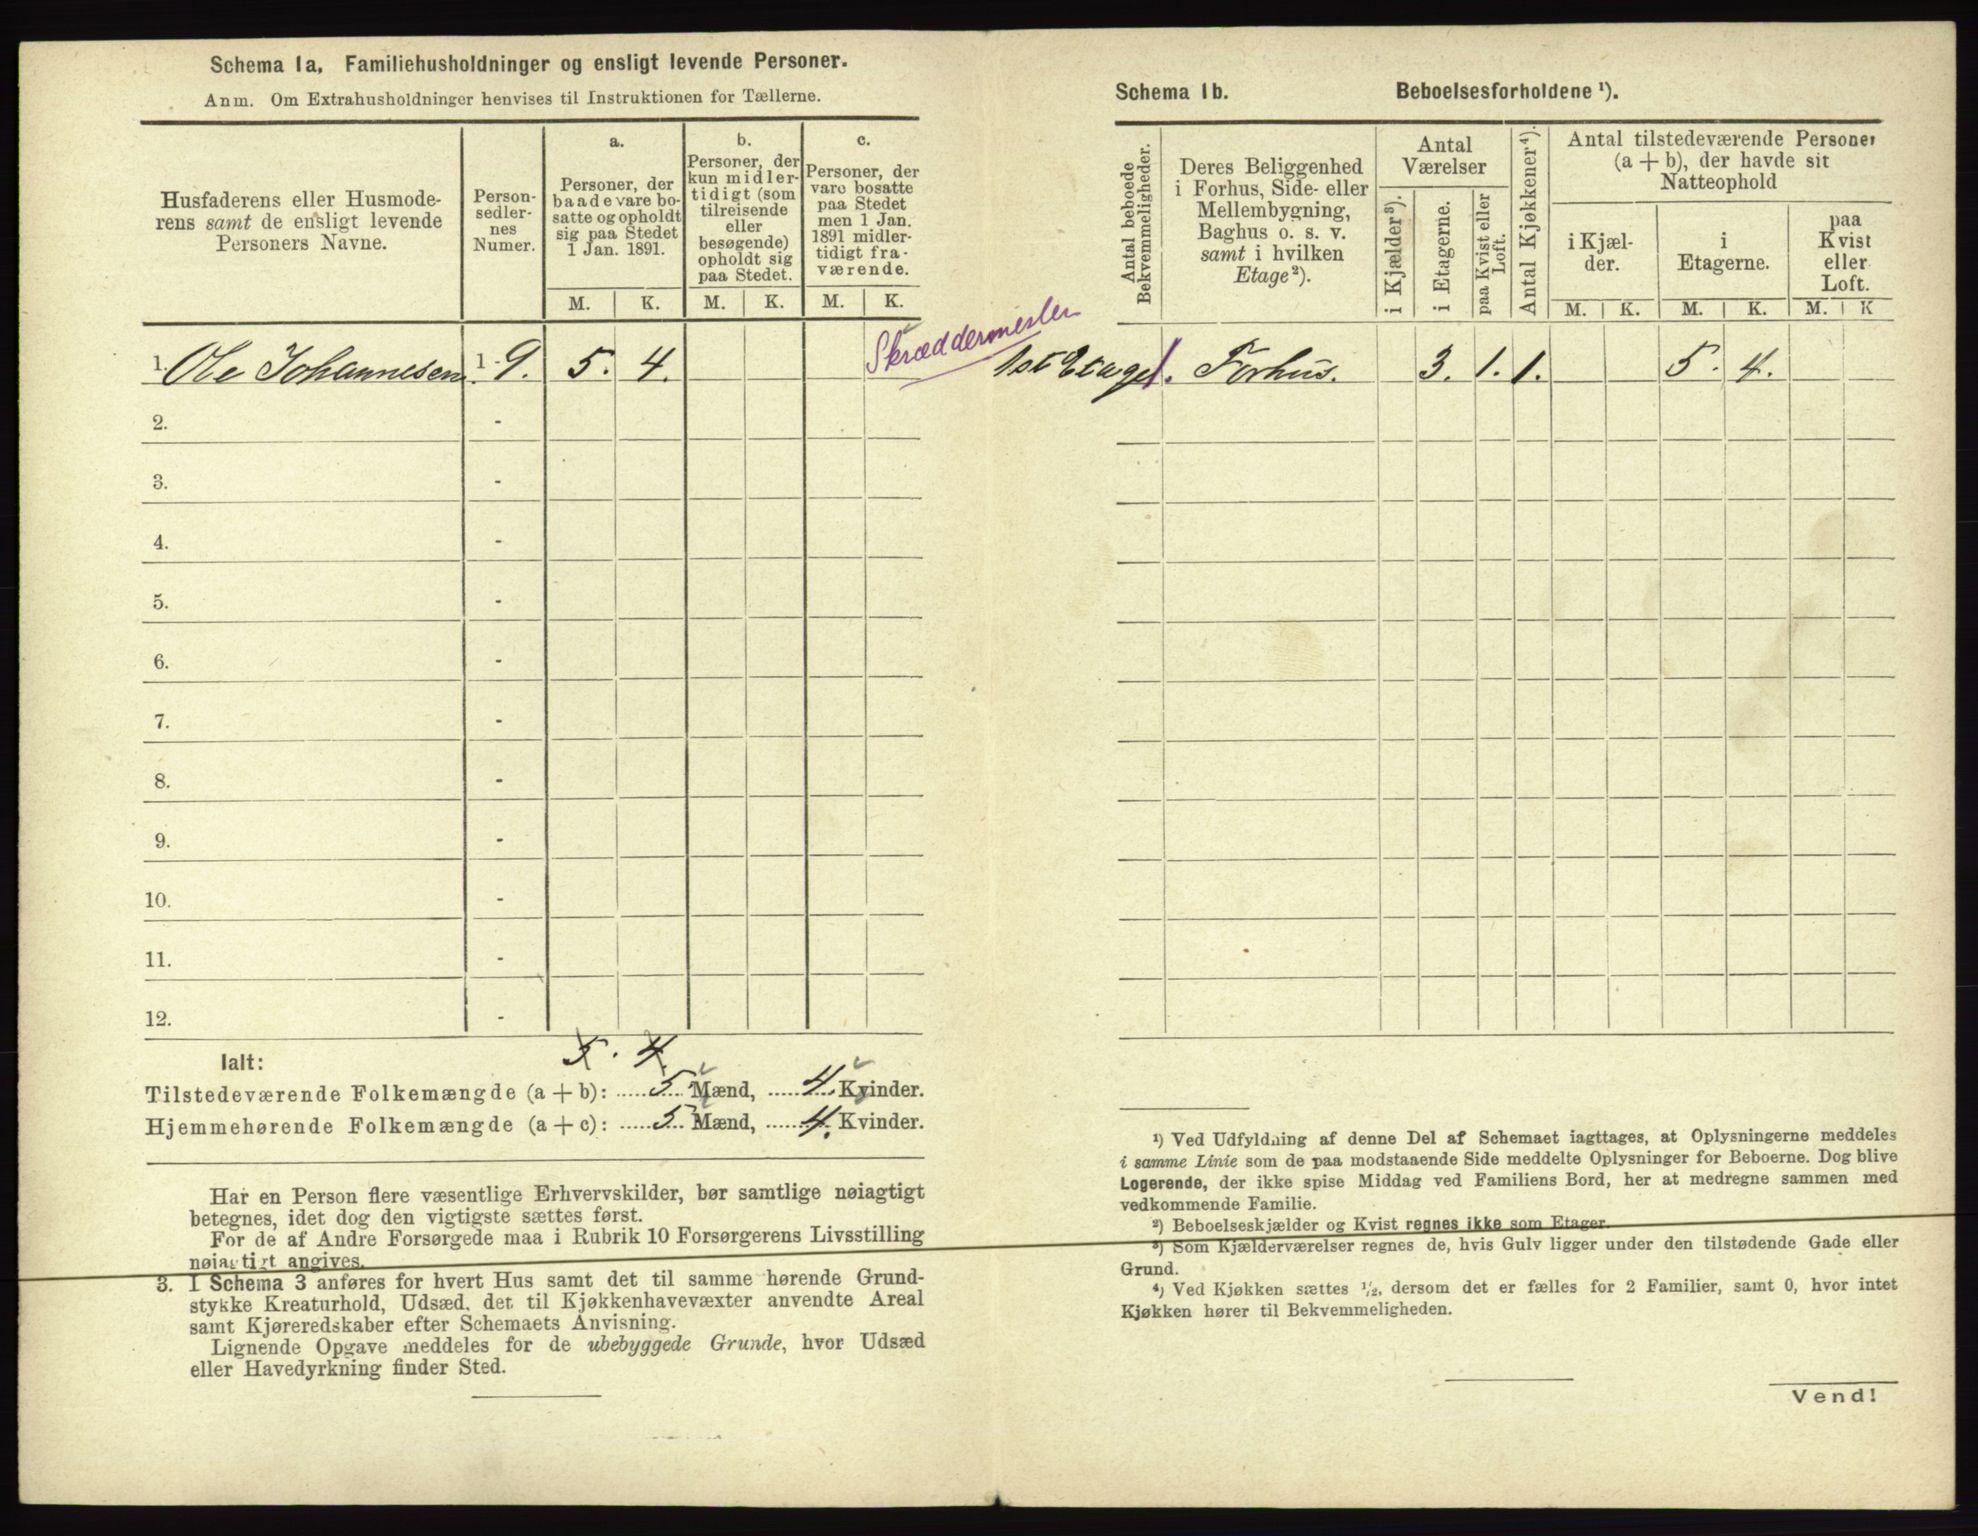 Schema 1a, Familiehusholdninger og ensligt levende Personer.
Anm. Om Extrahusholdninger henvises til Instruktionen for Tællerne.
Husfaderens eller Husmode-
rens samt de ensligt levende
Personers Navne.
Person-
sedler-
nes
Numer.
a.
Personer, der
baade vare bo-
satte og opholdt
sig paa Stedet
1 Jan. 1891.
M. K.
b.
Personer, der
kun midler-
tidigt (som
tilreisende
eller
besøgende)
opholdt sig
paa Stedet.
M. K.
c.
Personer, der
vare bosatte
paa Stedet
men 1 Jan.
1891 midler-
tidigt fra-
værende.
M. K.
1. Ole Johannesen 1-9. 5. 4.
Skræddermester
2. -
3. -
4. -
5. -
6. -
7. -
8. -
9. -
10. -
11. -
12. -
Ialt: 5. 4.
Tilstedeværende Folkemængde (a + b): 5 Mænd, 4. Kvinder.
Hjemmehørende Folkemængde (a + c): 5 Mænd, 4. Kvinder.
Har en Person flere væsentlige Erhvervskilder, bør samtlige nøiagtigt
betegnes, idet dog den vigtigste sættes først.
For de af Andre Forsørgede maa i Rubrik 10 Forsørgerens Livsstilling
nøiagtigt angives.
3. I Schema 3 anføres for hvert Hus samt det til samme hørende Grund-
stykke Kreaturhold, Udsæd, det til Kjøkkenhavevæxter anvendte Areal
samt Kjøreredskaber efter Schemaets Anvisning.
Lignende Opgave meddeles for de ubebyggede Grunde, hvor Udsæd
eller Havedyrkning finder Sted.
Schema 1b. Beboelsesforholdene ¹).
Antal beboede
Bekvemmeligheder.
Deres Beliggenhed
i Forhus, Side- eller
Mellembygning,
Baghus o. s. v.
samt i hvilken
Etage²).
Antal
Værelser
i Kjælder³).
i Etagerne.
paa Kvist eller
Loft.
Antal Kjøkkener⁴).
Antal tilstedeværende Personer
(a + b), der havde sit
Natteophold
i Kjæl-
der.
i
Etagerne.
paa
Kvist
eller
Loft.
M. K. M. K. M. K
1ste Etage 1. Forhus. 3. 1. 1. 5. 4.
¹) Ved Udfyldning af denne Del af Schemaet iagttages, at Oplysningerne meddeles
i samme Linie som de paa modstaaende Side meddelte Oplysninger for Beboerne. Dog blive
Logerende, der ikke spise Middag ved Familiens Bord, her at medregne sammen med
vedkommende Familie.
²) Beboelseskjælder og Kvist regnes ikke som Etager.
³) Som Kjælderværelser regnes de, hvis Gulv ligger under den tilstødende Gade eller
Grund.
⁴) Ved Kjøkken sættes ½, dersom det er fælles for 2 Familier, samt 0, hvor intet
Kjøkken hører til Bekvemmeligheden.
Vend!